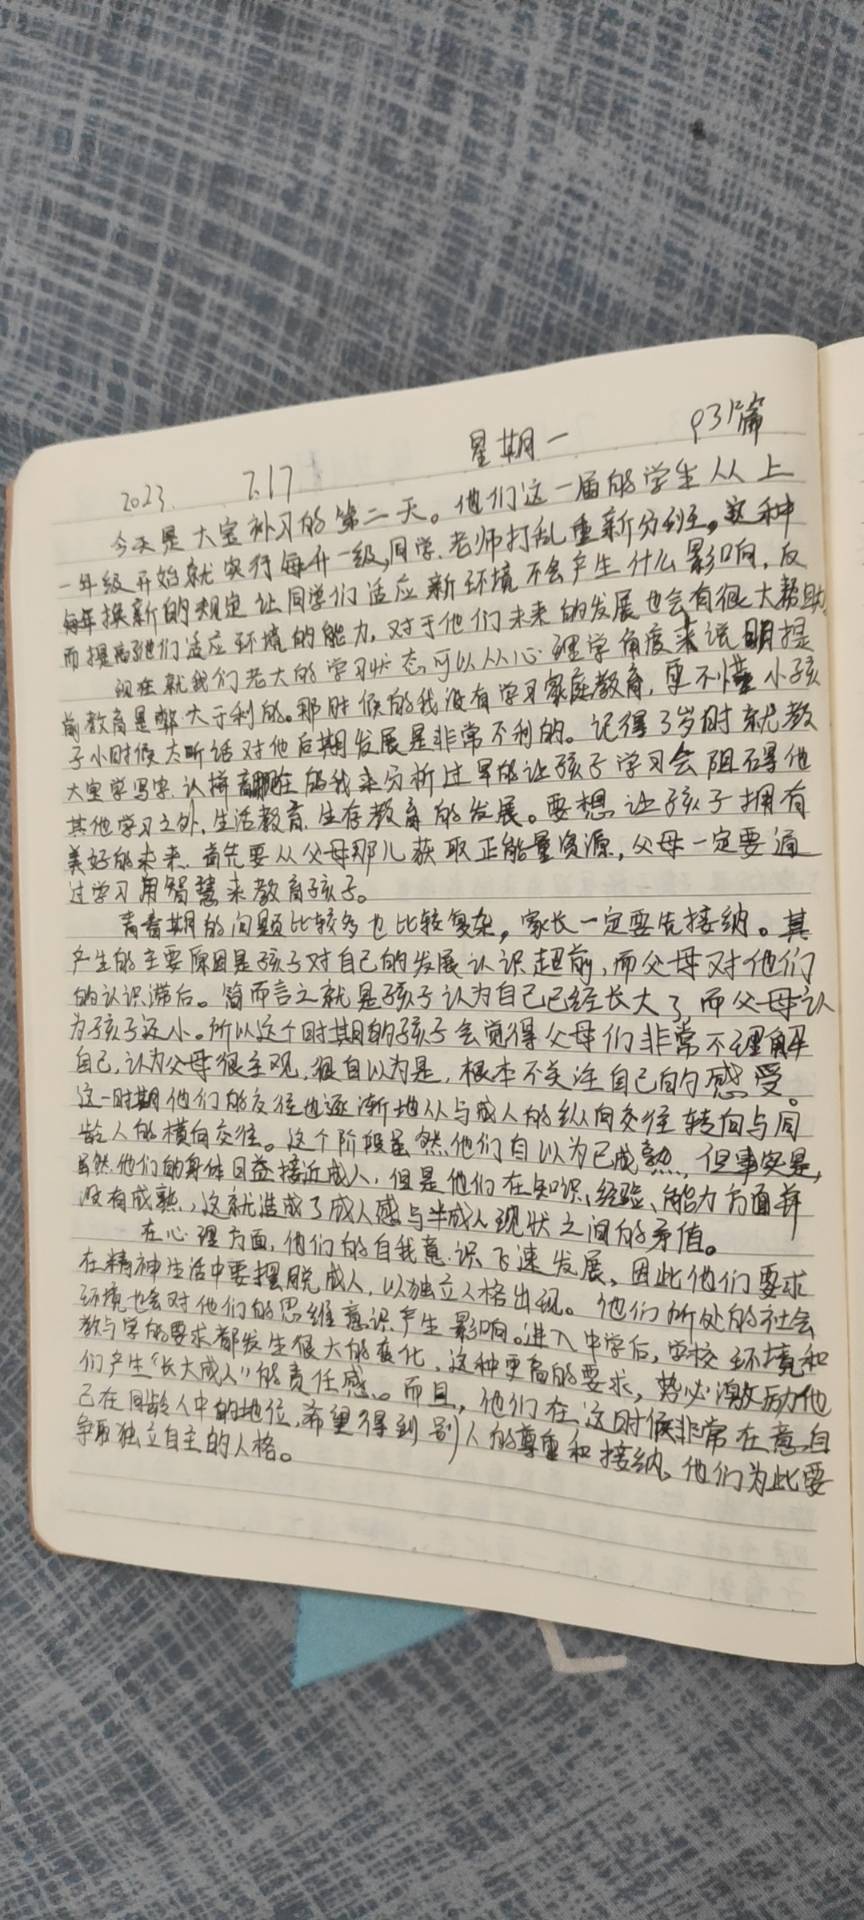 2023. 7.17 星期一 93篇
今天是大宝补习的第二天。他们这一届的学生从上
一年级开始就实行每升一级,同学.老师打乱重新分班。这种
每年换新的规定让同学们适应新环境不会产生什么影响,反
而提高他们适应环境的能力,对于他们未来的发展也会有很大帮助
现在就我们老大的学习状态可以从心理学角度来说明提
前教育是弊大于利的。那时候的我没有学习家庭教育,更不懂小孩
子小时候太听话对他后期发展是非常不利的。记得3岁时就教
大宝学写字.认拼音现在的我来分析过早的让孩子学习会阻碍他
其他学习之外.生活教育.生存教育的发展。要想让孩子拥有
美好的未来.首先要从父母那儿获取正能量资源,父母一定要通
过学习用智慧来教育孩子。
青春期的问题比较多也比较复杂,家长一定要先接纳。其
产生的主要原因是孩子对自己的发展认识超前,而父母对他们
的认识滞后。简而言之就是孩子认为自己已经长大了,而父母认
为孩子还小。所以这个时期的孩子会觉得父母们非常不理解
自己,认为父母很主观,很自以为是,根本不关注自己的感受。
这一时期他们的交往也逐渐地从与成人的纵向交往转向与同
龄人的横向交往。这个阶段虽然他们自以为已成熟,但事实是,
虽然他们的身体日益接近成人,但是他们在知识、经验、能力方面并
没有成熟,这就造成了成人感与半成人现状之间的矛值。
在心理方面,他们的自我意识飞速发展,因此他们要求
在精神生活中要摆脱成人,以独立人格出现。他们所处的社会
环境也会对他们的思维意识产生影响。进入中学后,学校环境和
教与学的要求都发生很大的变化,这种更高的要求,势必激励他
们产生“长大成人”的责任感。而且,他们在这时候非常在意自
己在同龄人中的地位,希望得到别人的尊重和接纳,他们为此要
争取独立自主的人格。